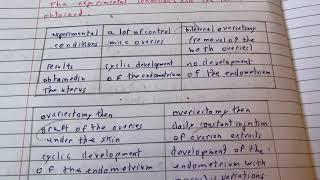 The experimental conditions and the
obtained.
experimental
conditions
a lot of control
mice ovaries
bilateral ovariectomy
(removal of the
both overies)
results
obtained in
The uterus
cyclic development
of the endometrium
no development
of the endometrium
overiectomy then
graft of the overies
under the skin
overiectomy then
daily constant injection
of overian extraits
cyclic development
of the endometrium
development of the
endometrium with
variations